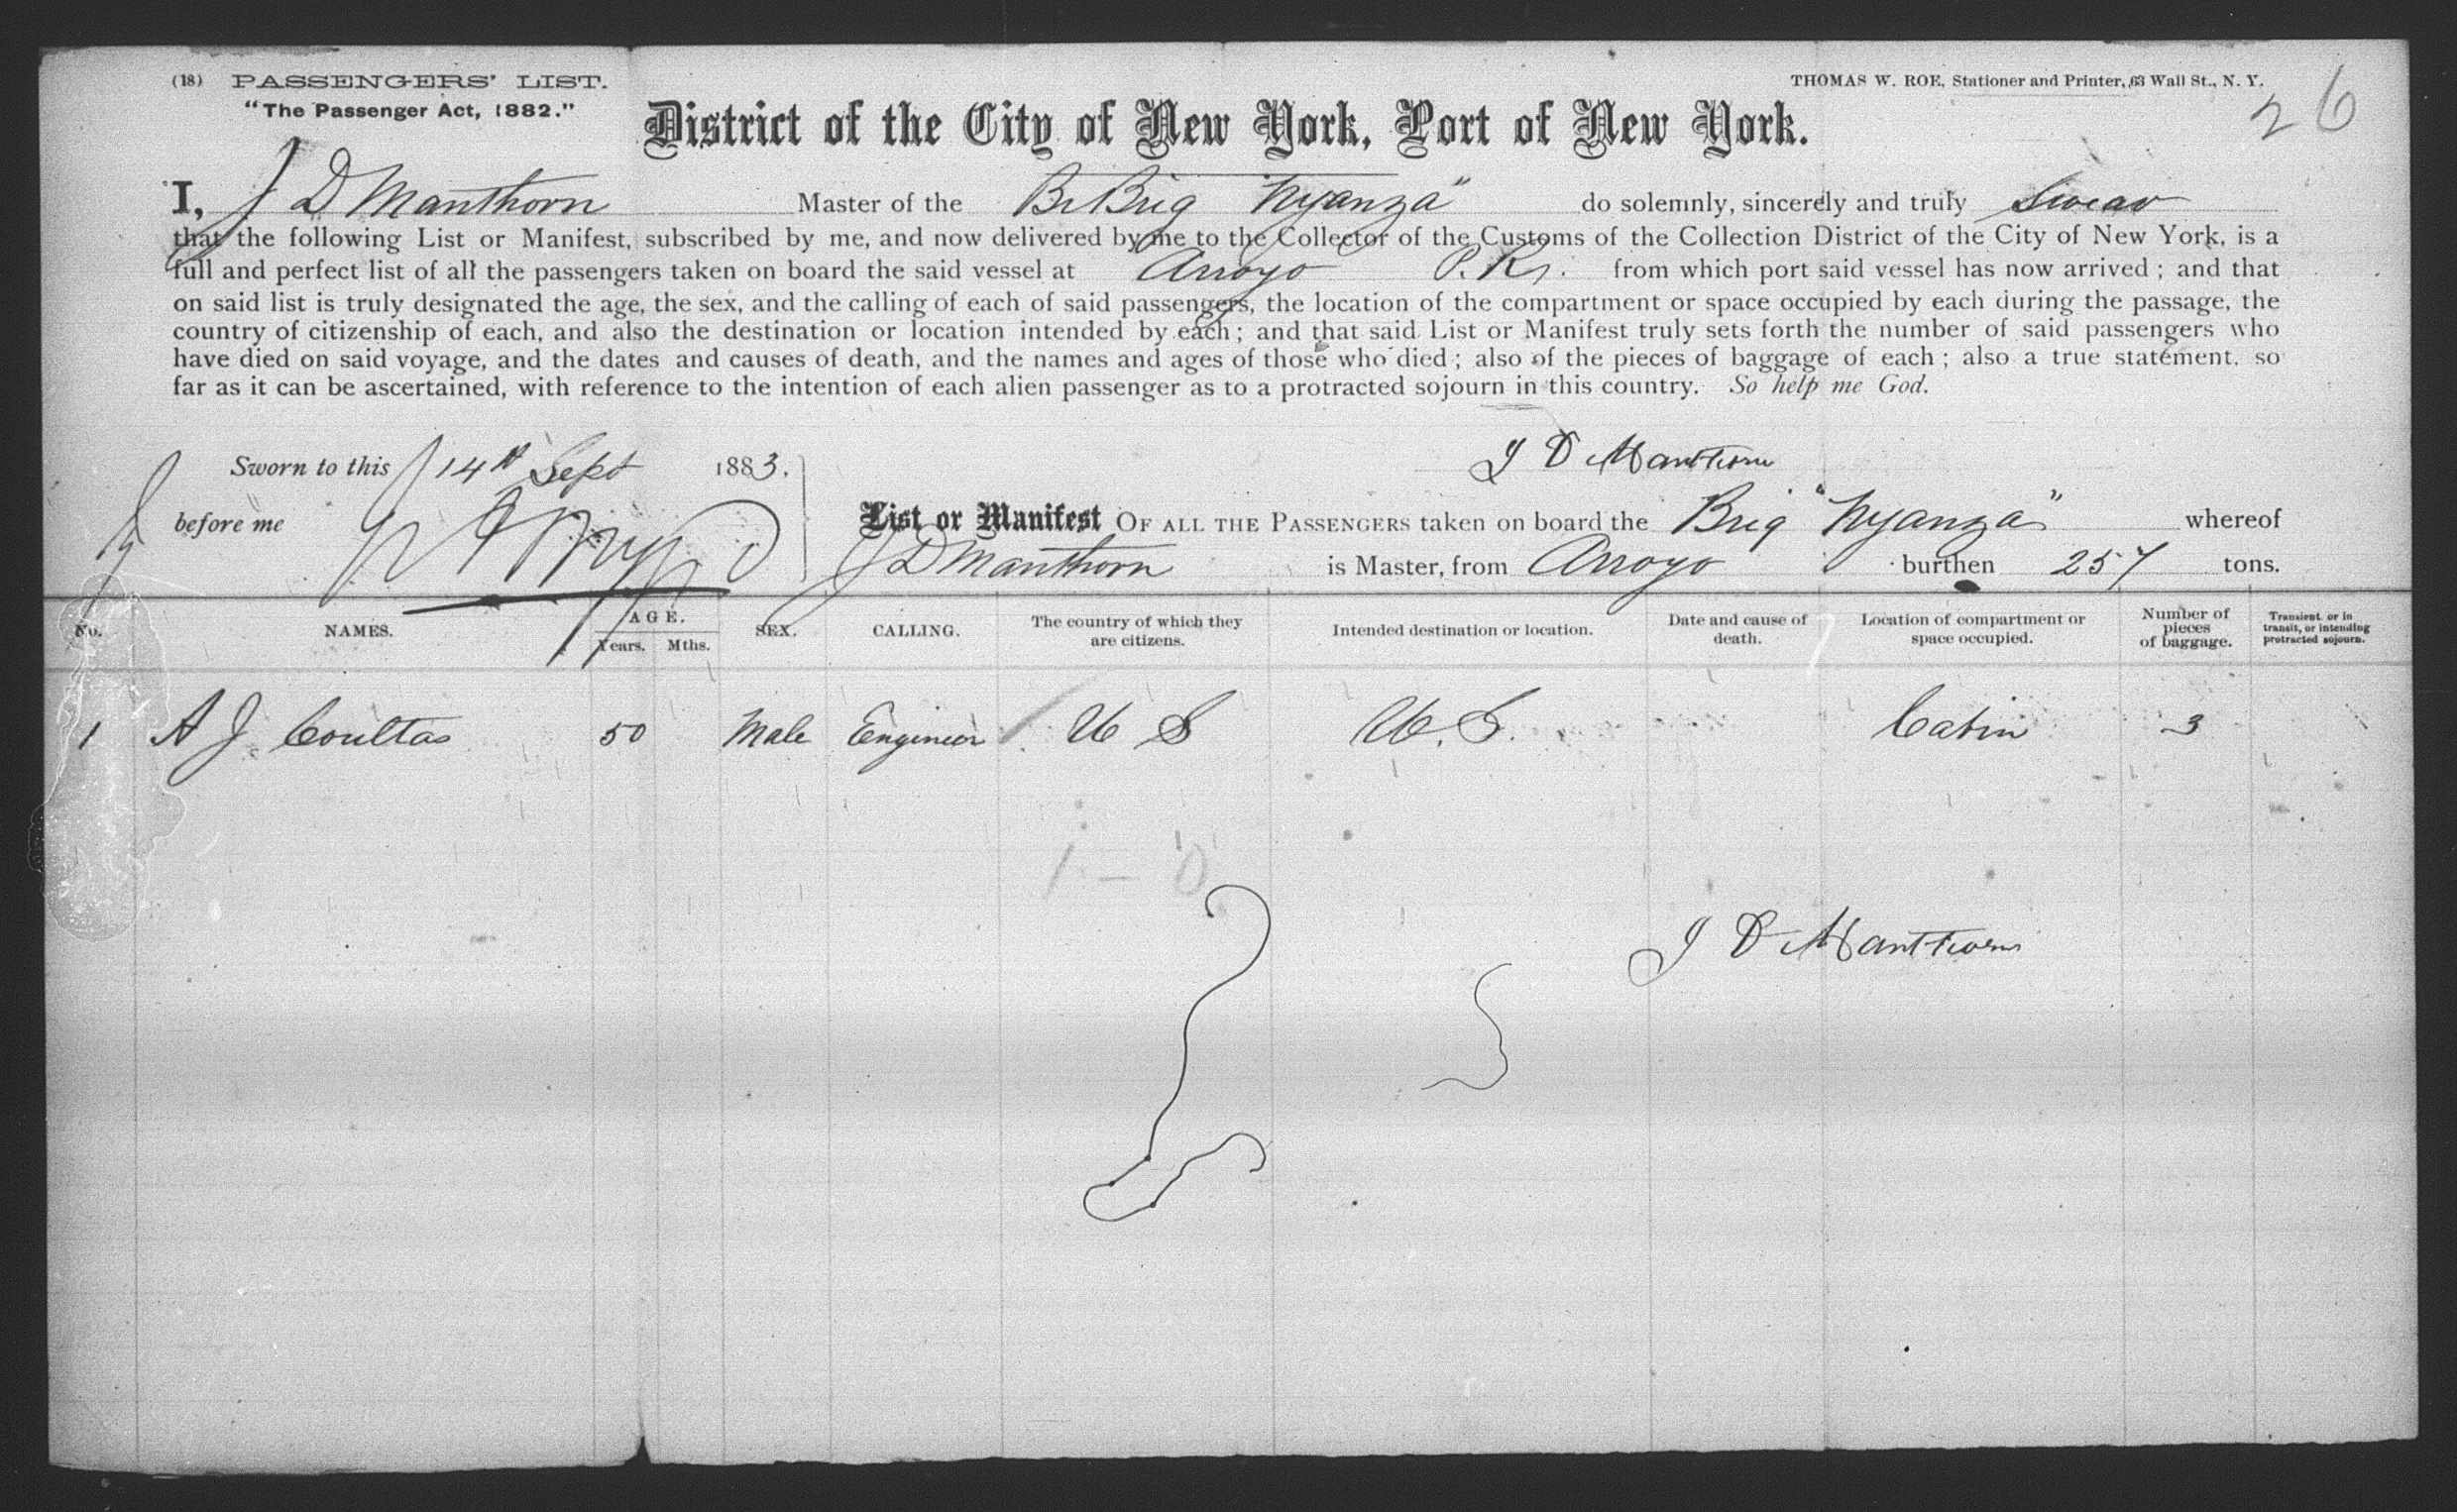 (18) PASSENGERS' LIST.
THOMAS W. ROE, Stationer and Printer, 63 Wall St., N. Y.
"The Passenger Act, 1882."
26
District of the City of New York, Port of New York.
I, J D Manthorn Master of the Br Brig "Nyanza" do solemnly, sincerely and truly Swear
that the following List or Manifest, subscribed by me, and now delivered by me to the Collector of the Customs of the Collection District of the City of New York, is a
full and perfect list of all the passengers taken on board the said vessel at Arroyo P. R. from which port said vessel has now arrived; and that
on said list is truly designated the age, the sex, and the calling of each of said passengers, the location of the compartment or space occupied by each during the passage, the
country of citizenship of each, and also the destination or location intended by each; and that said List or Manifest truly sets forth the number of said passengers who
have died on said voyage, and the dates and causes of death, and the names and ages of those who died; also of the pieces of baggage of each; also a true statement, so
far as it can be ascertained, with reference to the intention of each alien passenger as to a protracted sojourn in this country. So help me God.
Sworn to this 14th Sept 1883.
J D Manthorn
before me
List or Manifest OF ALL THE PASSENGERS taken on board the Brig "Nyanza" whereof
J D Manthorn is Master, from Arroyo burthen 257 tons.
No. NAMES. AGE. Years. Mths. SEX. CALLING. The country of which they are citizens. Intended destination or location. Date and cause of death. Location of compartment or space occupied. Number of pieces of baggage. Transient, or in transit, or intending protracted sojourn.
1 A J Coultas 50 Male Engineer U S U. S. Cabin 3
1 - 0
J D Manthorn